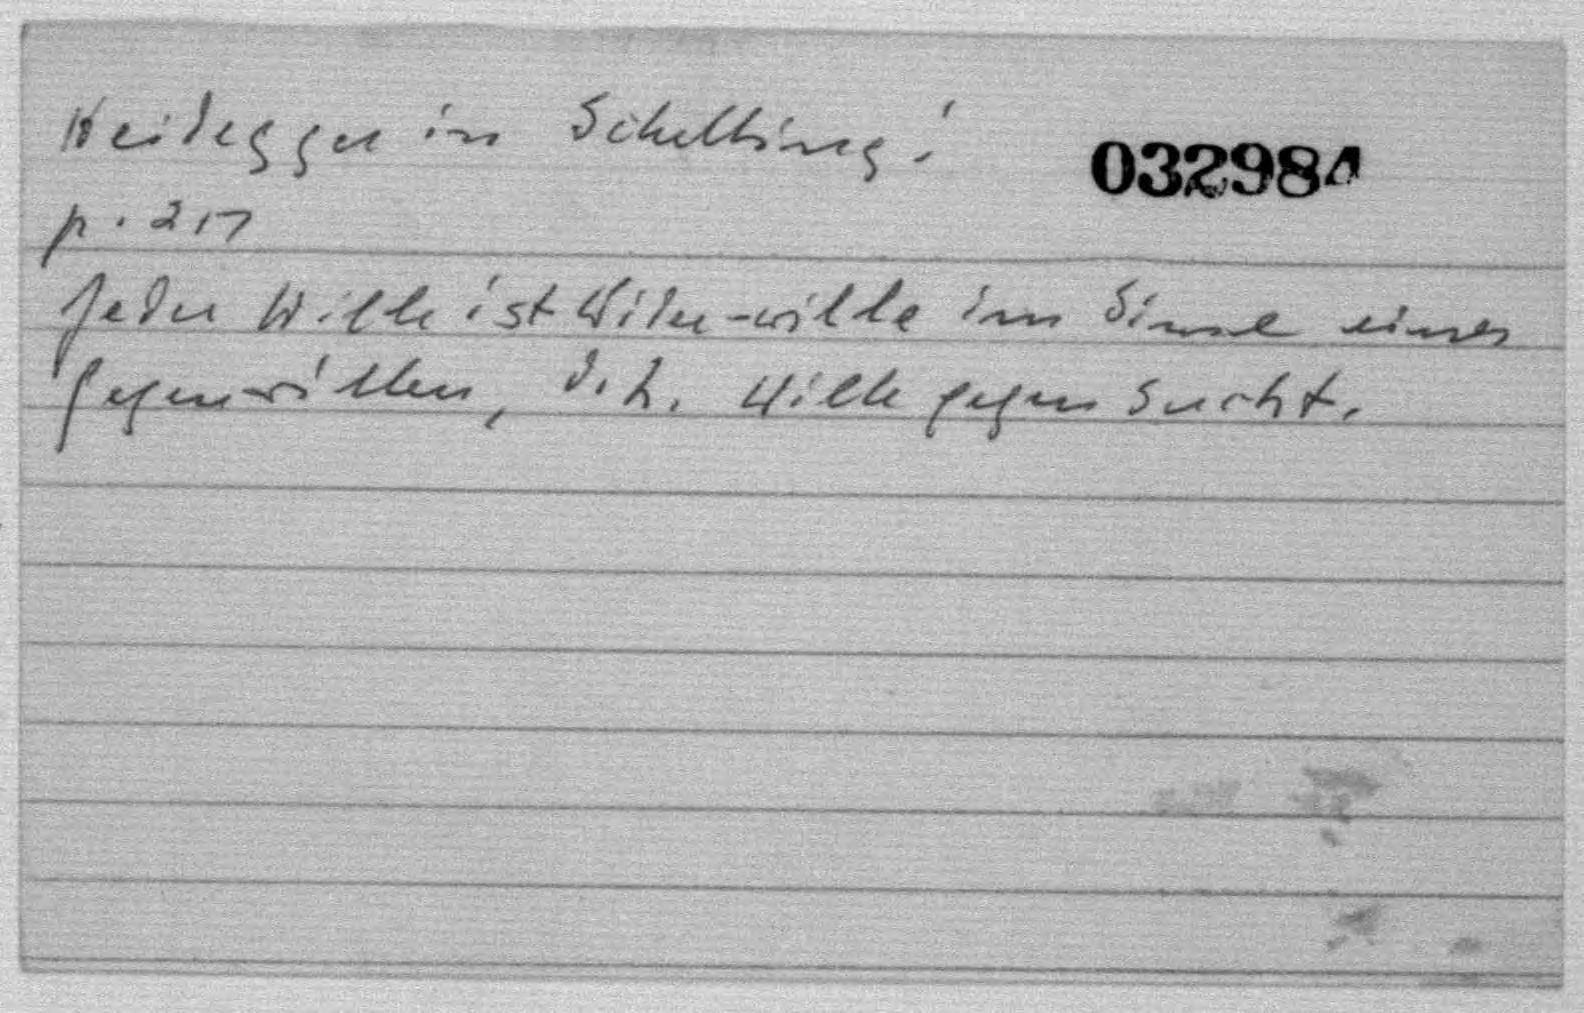 Heidegger in Schelling!
032984
p. 217
Jeder Wille ist Wider-wille im Sinne eines
Gegenwillen, d. h. Wille gegen Sucht.